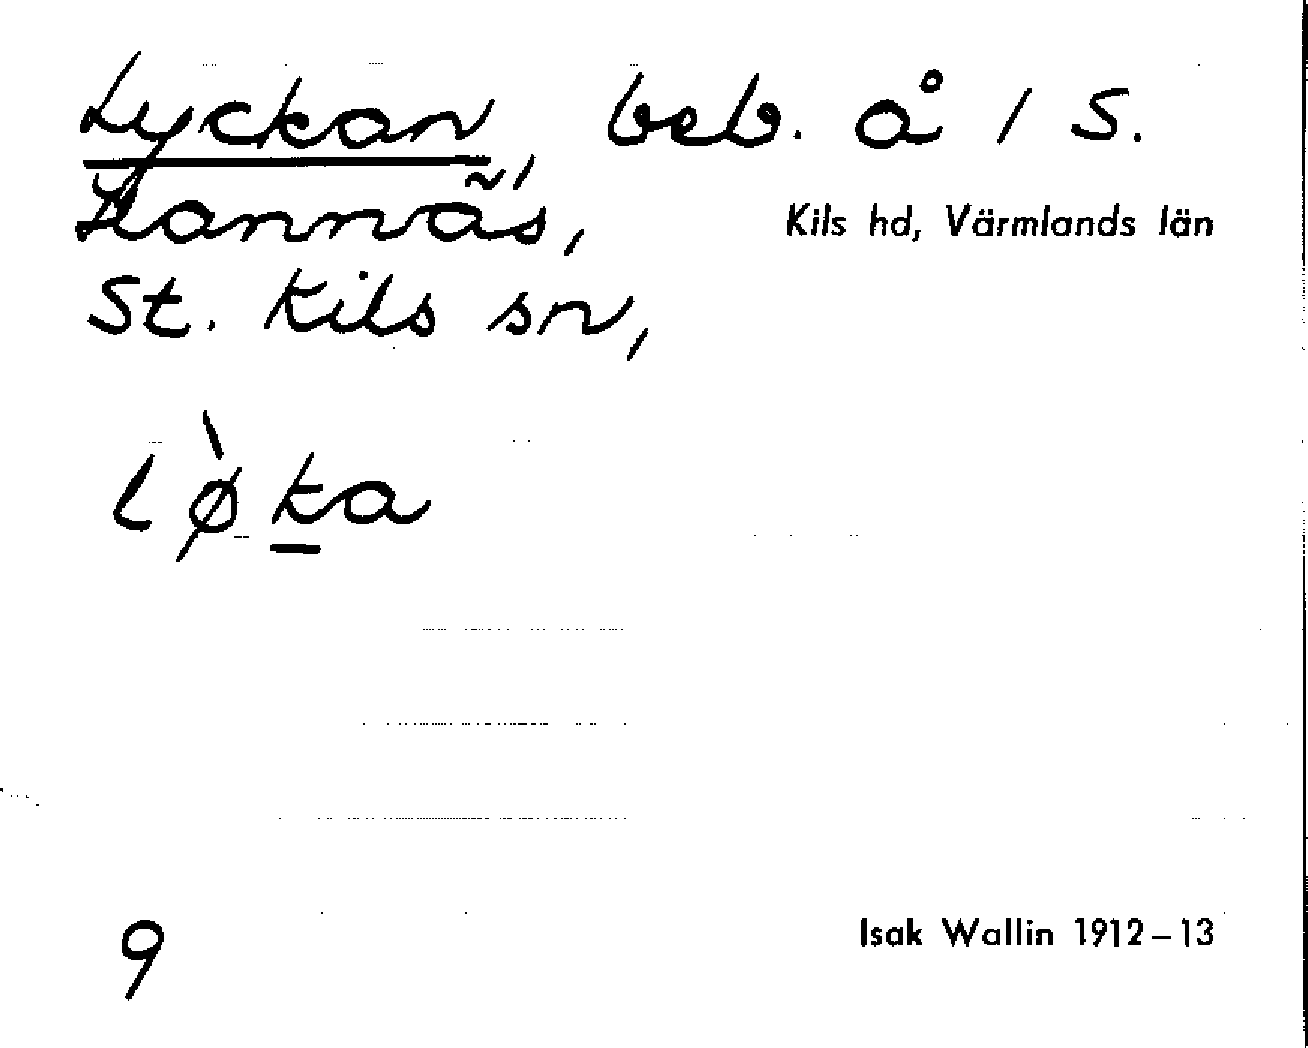 Lyckan, beb. å 1 S.
Hannäs,
Kils hd, Värmlands län
St. Kils sn,
lø̀ka
9
Isak Wallin 1912–13